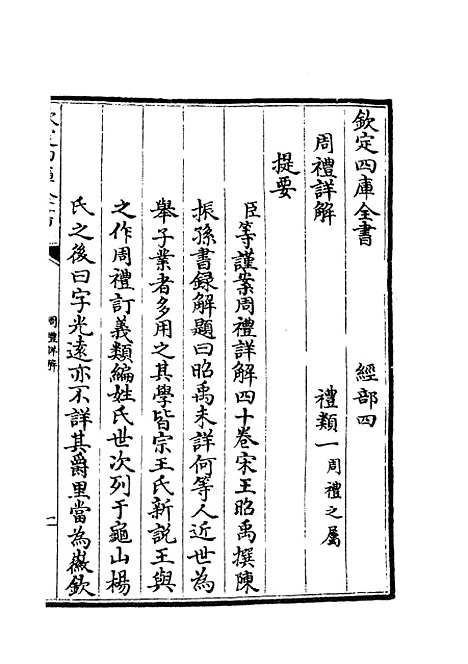 欽定四庫全書 經部四
周禮詳解 禮類一周禮之屬
提要
臣等謹案周禮詳解四十卷宋王昭禹撰陳
振孫書録解題曰昭禹未詳何等人近世為
舉子業者多用之其學皆宗王氏新說王與
之作周禮訂義類編姓氏世次列于龜山楊
氏之後曰字光遠亦不詳其爵里當為徽欽
周禮詳解